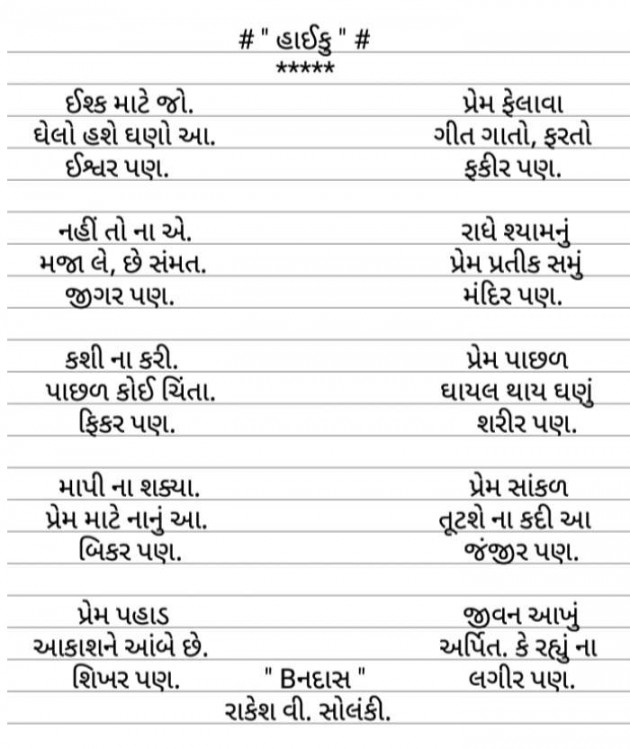 # " હાઈકુ " #
*****
ઈશ્ક માટે જો.
ઘેલો હશે ઘણો આ.
ઈશ્વર પણ.
નહીં તો ના એ.
મજા લે, છે સંમત.
જીગર પણ.
કશી ના કરી.
પાછળ કોઈ ચિંતા.
ફિકર પણ.
માપી ના શક્યા.
પ્રેમ માટે નાનું આ.
બિકર પણ.
પ્રેમ પહાડ
આકાશને આંબે છે.
શિખર પણ.
પ્રેમ ફેલાવા
ગીત ગાતો, ફરતો
ફકીર પણ.
રાધે શ્યામનું
પ્રેમ પ્રતીક સમું
મંદિર પણ.
પ્રેમ પાછળ
ઘાયલ થાય ઘણું
શરીર પણ.
પ્રેમ સાંકળ
તૂટશે ના કદી આ
જંજીર પણ.
જીવન આખું
અર્પિત. કે રહ્યું ના
લગીર પણ.
" Bનદાસ "
રાકેશ વી. સોલંકી.